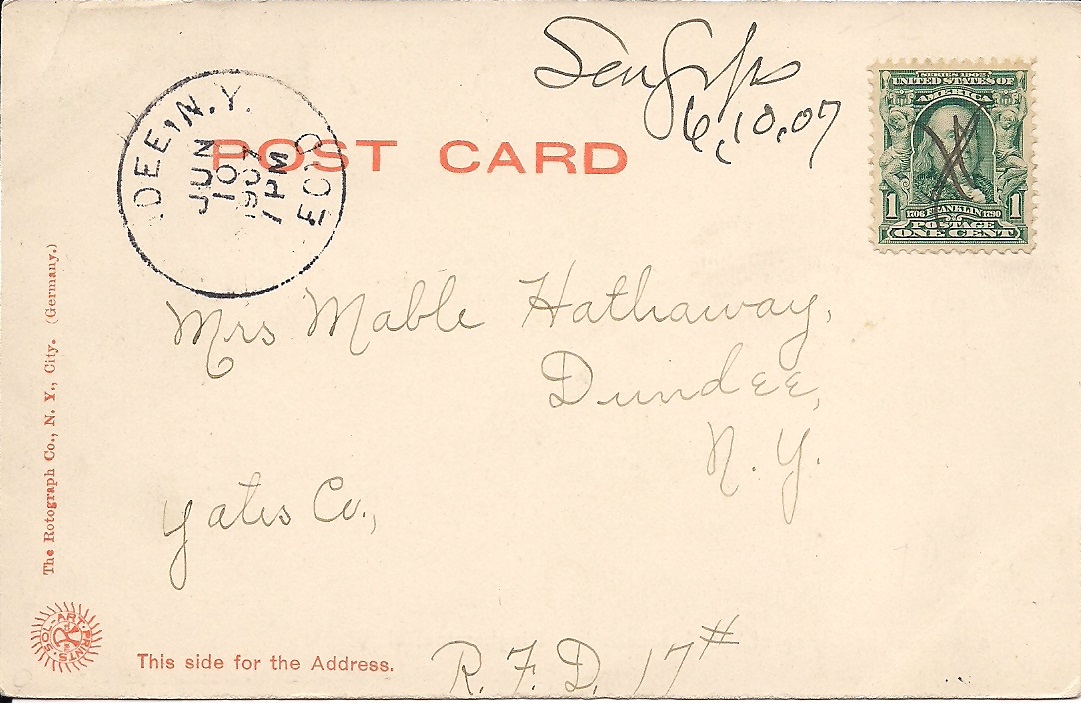 6, 10, 07
SERIES 1902
UNITED STATES OF
AMERICA
1 1706 FRANKLIN 1790 1
POSTAGE
ONE CENT
DEE, N.Y.
JUN
10
1907
1 PM
REC'D
POST CARD
Mrs Mable Hathaway,
Dundee,
N. Y.
Yates Co.,
R. F. D. 17#
The Rotograph Co., N. Y., City. (Germany.)
SOL-ART-PRINTS
R
This side for the Address.